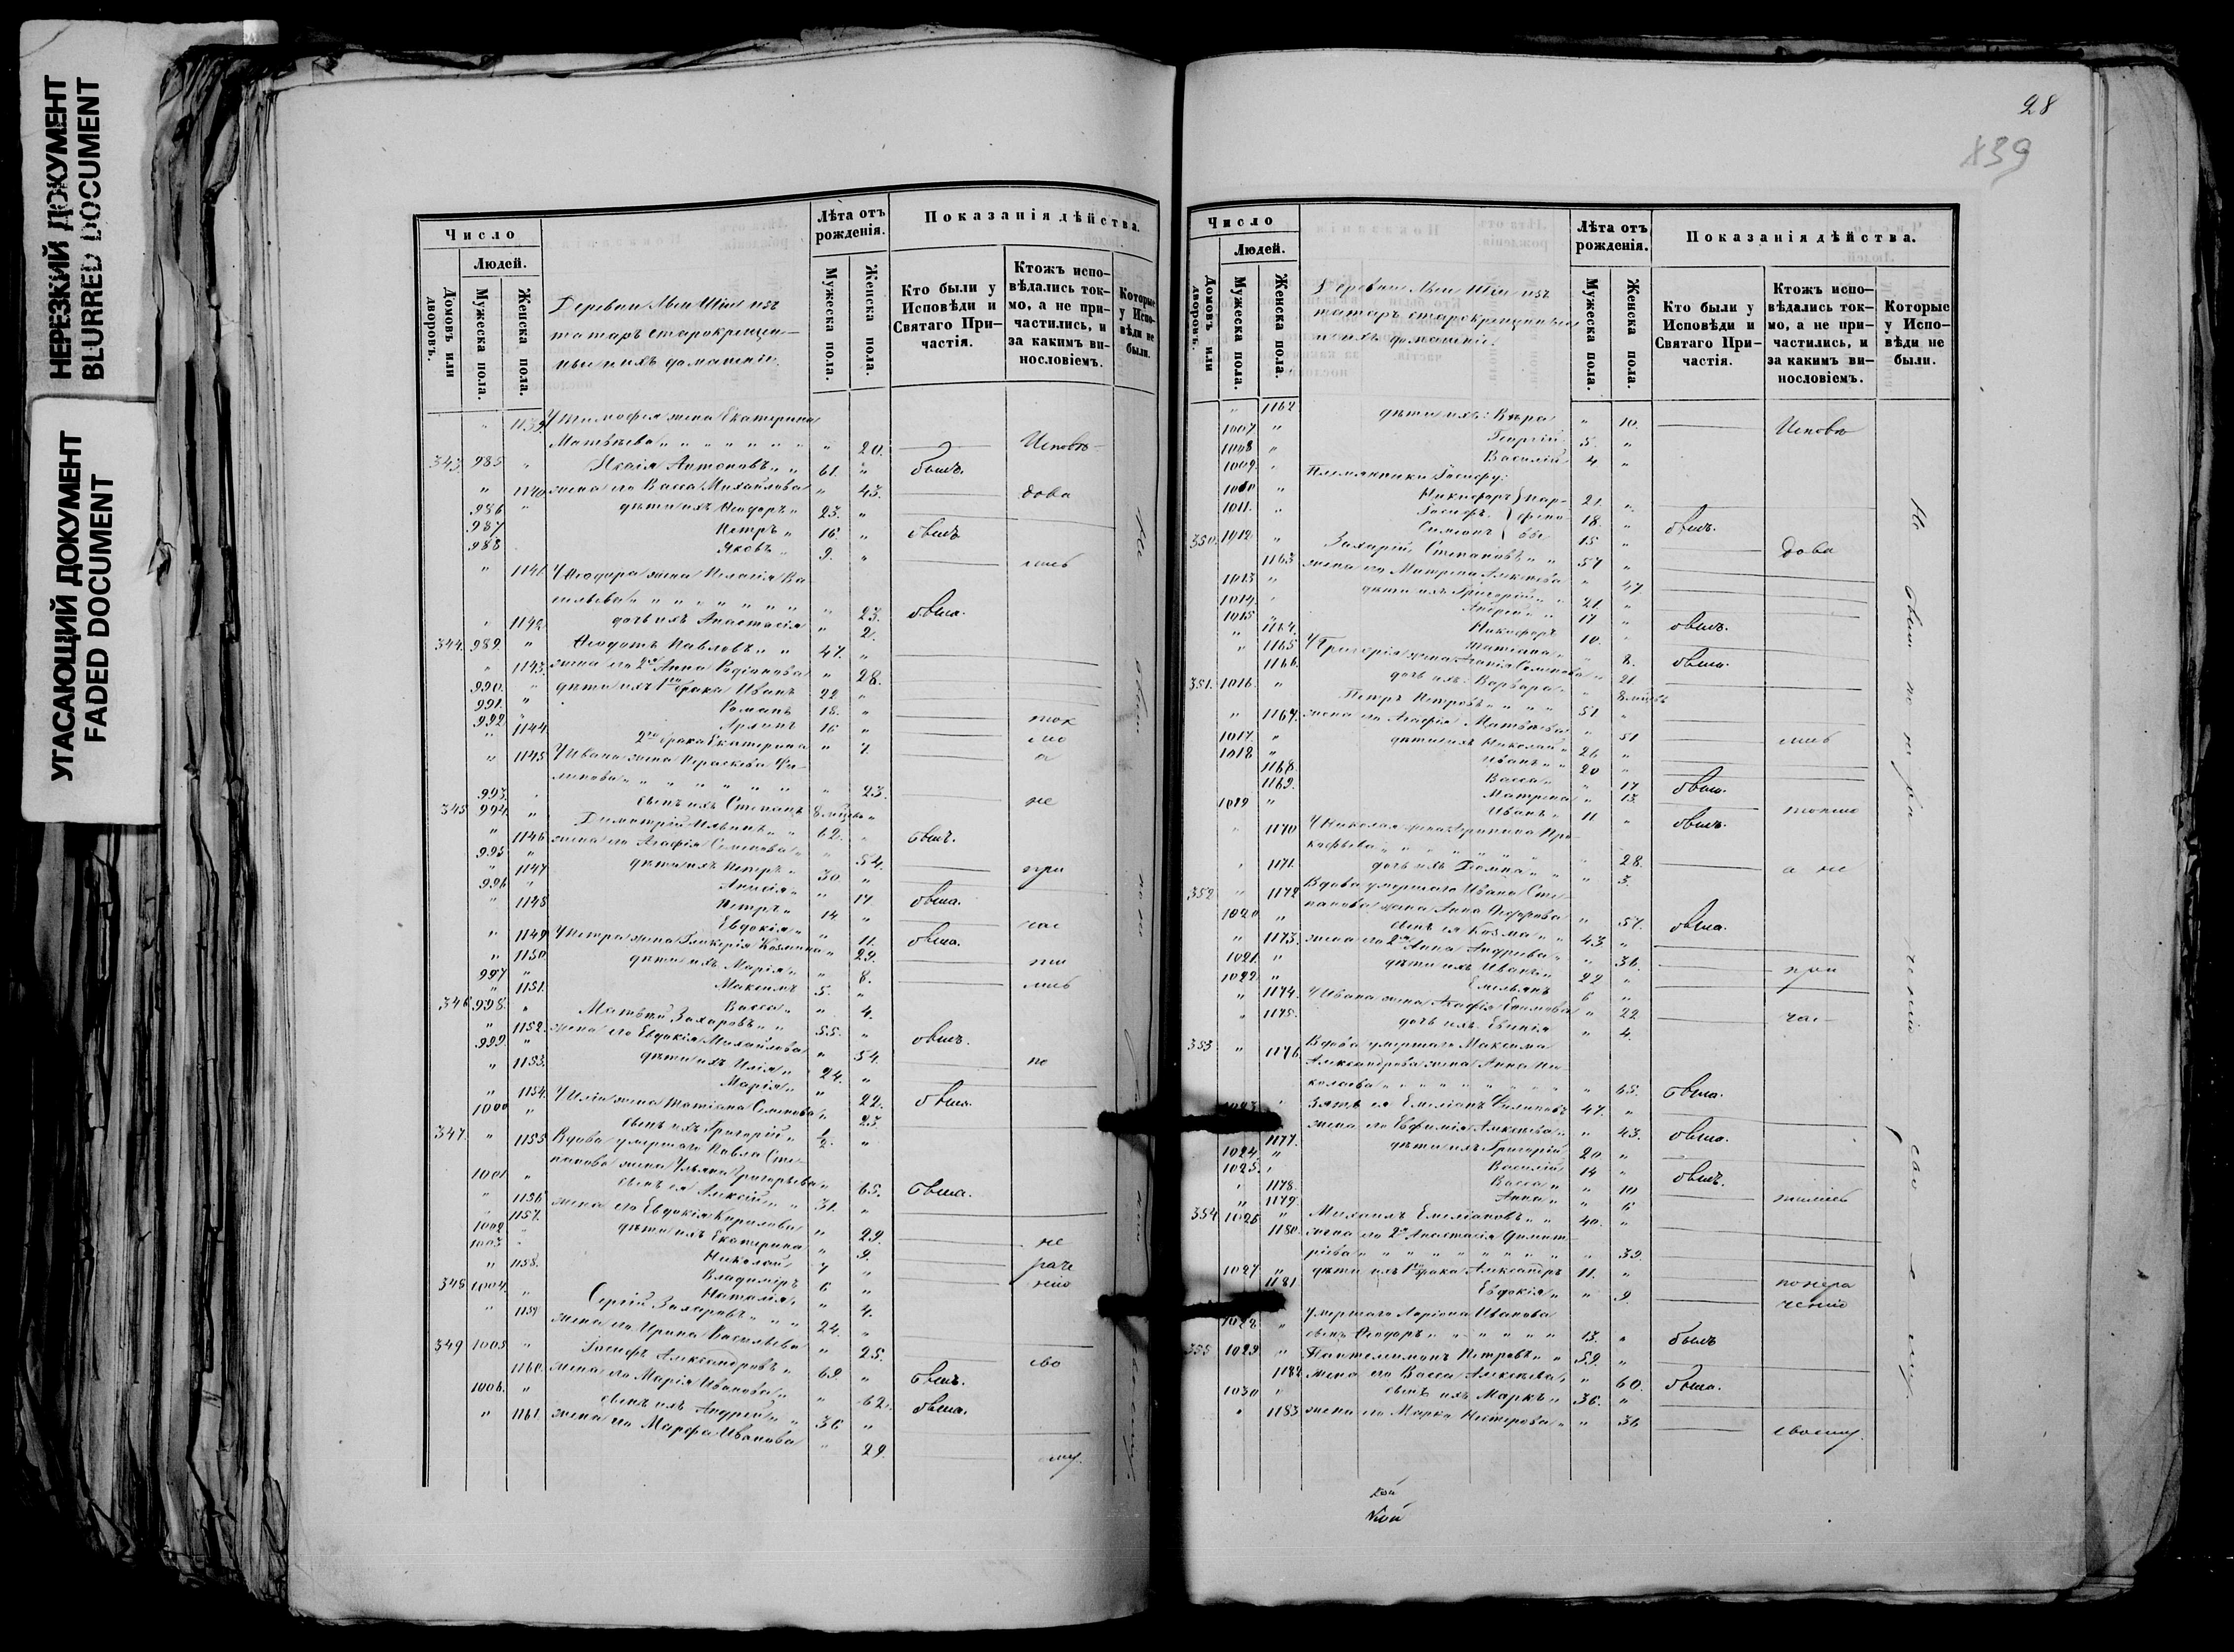 НЕРЕЗКИЙ ДОКУМЕНТ
BLURRED DOCUMENT
УГАСАЮЩИЙ ДОКУМЕНТ
FADED DOCUMENT
Число
Людей.
Домовъ или дворовъ.
Мужеска пола.
Женска пола.
татаръ старокрещен-
ныи и ихъ домашніи.
Лѣта отъ рожденія.
Мужеска пола.
Женска пола.
Показанія дѣйства.
Кто были у Исповѣди и Святаго При-частія.
Ктожъ испо-вѣдались ток-мо, а не при-частились, и за какимъ ви-нословіемъ.
Которые у Испо-вѣди не были.
" 1139 У Тимофея жена Екатерина
Матвѣева " " 20. Исповѣ-
343. 985 " Исаія Антоновъ " " 61. " былъ.
" 1140 жена его Васса Михайлова " 43. дова
986 " дѣти ихъ Ѳеодоръ " 23. "
987 Петръ " 16. " былъ
988 Яковъ " 9. "
" 1141 У Ѳеодора жена Пелагія Ва-
сильева " " 23. была.
" 1142 дочь ихъ Анастасія " 2.
344. 989. " Ѳеодотъ Павловъ " " 47. "
" 1143. жена его 2я Анна Родіонова " 28.
990. " дѣти ихъ 1го брака Иванъ 22 "
991. " Романъ 18. "
992. " 16 " ток
" 1144 2го брака Екатерина " 7 мо
" 1145 У Ивана жена Параскева Фи-
липова " " 23. а
993. " сынъ ихъ Степанъ 8 мѣсяц. " не
345 994. " Димитрій Ильинъ " " 62. " былъ.
" 1146 жена его Агафія Семенова " 54.
995 " дѣти ихъ Петръ " 30 " при
" 1147 Анисія " " 17. была.
996 " Петръ " 14 "
" 1148 Евдокія " " 11. была. час
" 1149 У Петра жена Гликерія Козмина " 29.
" 1150 дѣти ихъ Марія " " 8. ти
997 " Максимъ 5. " лись
" 1151. Васса " " 4.
346 998. " Матвѣй Захаровъ " " 55. " былъ.
" 1152. жена его Евдокія Михайлова " 54.
999 " дѣти ихъ Илія " 24. " по
" 1153. Марія " " 22. была.
" 1154. У Иліи жена Татіана Семенова " 23.
1000 " сынъ ихъ Григорій " ½. "
347. " 1155 Вдова умершаго Павла Сте-
панова жена Ульяна Григорьева " 65. была.
1001 " сынъ ея Алексій " " 31. "
" 1156 жена его Евдокія Кирилова " 29.
" 1157. дѣти ихъ Екатерина " 9. не
1002 " Николай 7 " раче
1003 " Владиміръ 6 " нію
" 1158. Наталія " " 4.
348 1004. " Сергій Захаровъ " " 24. "
" 1159 жена его Ирина Васильева " 25.
349 1005 " Іосифъ Александровъ " 69. " былъ. сво
1160. жена его Марія Иванова " " 62. была.
1006. " сынъ ихъ Андрей " " 36 "
" 1161. жена его Марфа Иванова " 29. ему.
28
839
Число
Людей.
Домовъ или дворовъ.
Мужеска пола.
Женска пола.
татаръ старокрещенныи
и ихъ домашніи.
Лѣта отъ рожденія.
Мужеска пола.
Женска пола.
Показанія дѣйства.
Кто были у Исповѣди и Святаго При-частія.
Ктожъ испо-вѣдались ток-мо, а не при-частились, и за какимъ ви-нословіемъ.
Которые у Испо-вѣди не были.
" 1162 дѣти ихъ: Вѣра " 10. Исповѣ
1007 " Георгій 5. "
1008 " Василій 4 "
1009 " Племянники Іосифу:
1010 " Никифоръ 21. "
1011. " Іосифъ 18. " былъ.
350. 1012 " Симеонъ 15 " дова
Захарій Степановъ " " 57 "
1163 жена его Матрена Алексѣева " 47.
1013 " дѣти ихъ Григорій " 21. "
1014. " Андрей " 17 " былъ.
1015 " Никифоръ 10. "
" 1164. Татіана " " 8. была.
" 1165 У Григорія жена Семенова " 21.
1166. дочь ихъ Варвара " " 8 мѣсяцъ
351. 1016. " Петръ Петровъ " " 51 "
" 1167. жена его Агафія Матвѣева " 51 лись
1017. " дѣти ихъ Николай " 26 "
1018 " Иванъ " " 20 "
1168. Васса " " 17 была.
1169. Матрена " 13. токмо
1019 " Иванъ " 11 " былъ.
" 1170 У Николая жена Агрипина Про-
кофьева " " 28.
" 1171. дочь ихъ Домна " " 3. а не
352 " 1172 Вдова умершаго Ивана Сте-
панова жена Анна Ѳедорова " 57. была.
1020 " сынъ ея Козма " " 43 "
" 1173. жена его 2я Анна Андреева " 36.
1021. " дѣти ихъ Иванъ " 22 " при
1022. " Емельянъ 6 "
" 1174. У Ивана жена Агафія Ефимова " 22 час-
" 1175. дочь ихъ Евгенія " 4.
353 " 1176 Вдова умершаго Максима
Александрова жена Анна Ни-
колаева " " 65. была.
1023 " Зять ея Емеліанъ Филиповъ 47. "
1177. жена его Ефимія Алексѣева " 43. была.
1024. " дѣти ихъ Григорій 20 "
1025. " Василій 14 " былъ.
" 1178. Васса " " 10 тились
" 1179. Анна " " 6
354 1026 " Михаилъ Емеліановъ " " 40. "
1180. жена его 2я Анастасія Димит
ріева " " 39.
1027 " дѣти ихъ 1го брака Александръ 11. " понера
1181 Евдокія " " 9. ченію
Умершаго Ларіона Иванова
1028. " сынъ Ѳеодоръ " " 13. " былъ
355 1029 " Пантелимонъ Петровъ " " 59. "
1182 жена его Васса Алексѣева " 60. была.
1030 " сынъ ихъ Маркъ " 36. "
" 1183 жена его Марѳа Нестерова " " 36 своему.